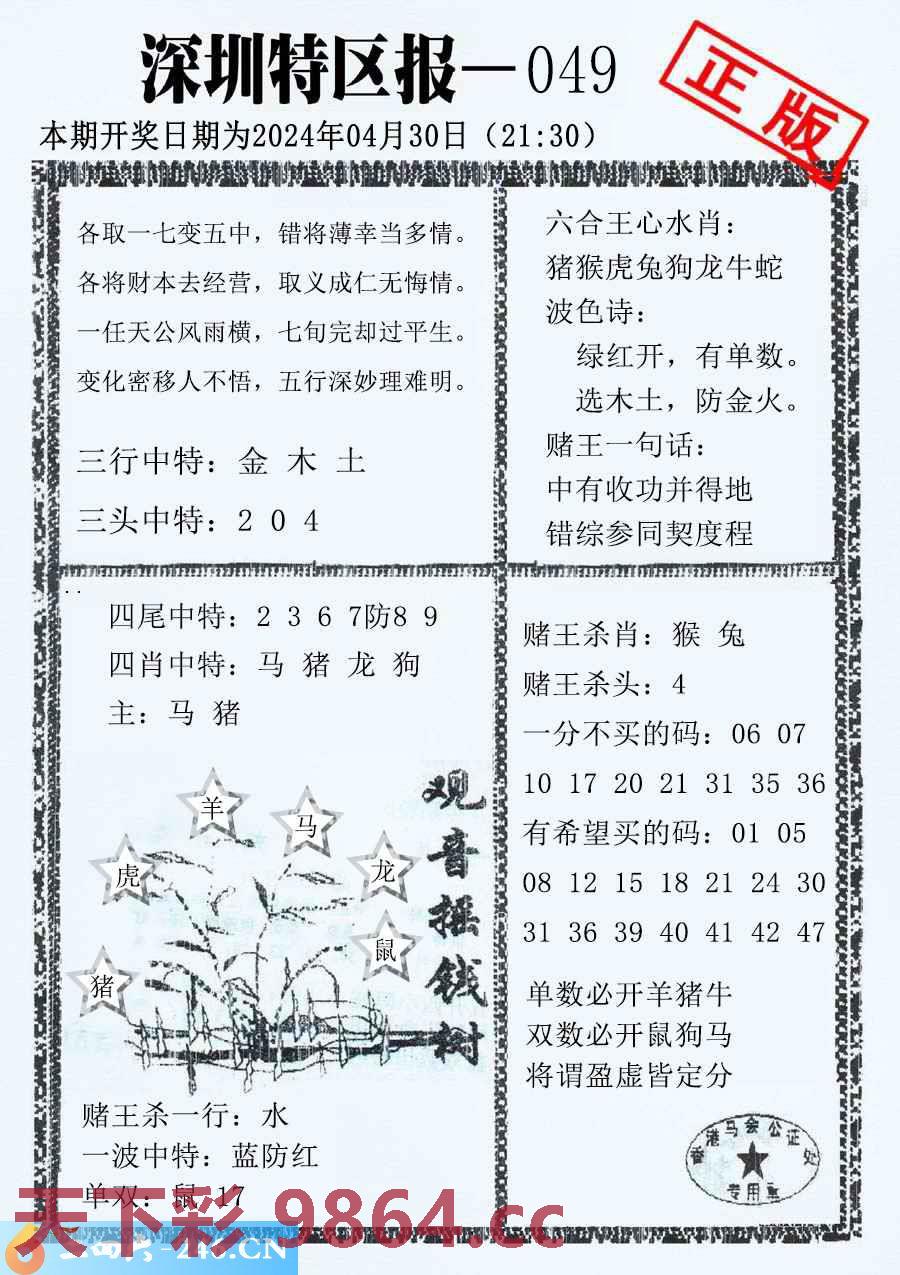 深圳特区报—049
正版
本期开奖日期为2024年04月30日（21:30）
各取一七变五中，错将薄幸当多情。
各将财本去经营，取义成仁无悔情。
一任天公风雨横，七旬完却过平生。
变化密移人不悟，五行深妙理难明。
三行中特：金 木 土
三头中特：2 0 4
六合王心水肖：
猪猴虎兔狗龙牛蛇
波色诗：
绿红开，有单数。
选木土，防金火。
赌王一句话：
中有收功并得地
错综参同契度程
四尾中特：2 3 6 7防8 9
四肖中特：马 猪 龙 狗
主：马 猪
羊
马
虎
龙
鼠
猪
观音摇钱树
赌王杀一行：水
一波中特：蓝防红
单双：鼠 17
赌王杀肖：猴 兔
赌王杀头：4
一分不买的码：06 07
10 17 20 21 31 35 36
有希望买的码：01 05
08 12 15 18 21 24 30
31 36 39 40 41 42 47
单数必开羊猪牛
双数必开鼠狗马
将谓盈虚皆定分
香港马会公证处
专用章
天下彩 9864.cc